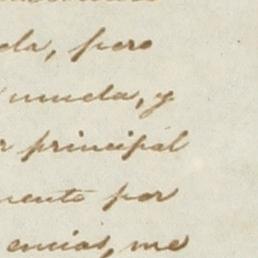 da, pero
muela, y
r principal
mento por
encias, me